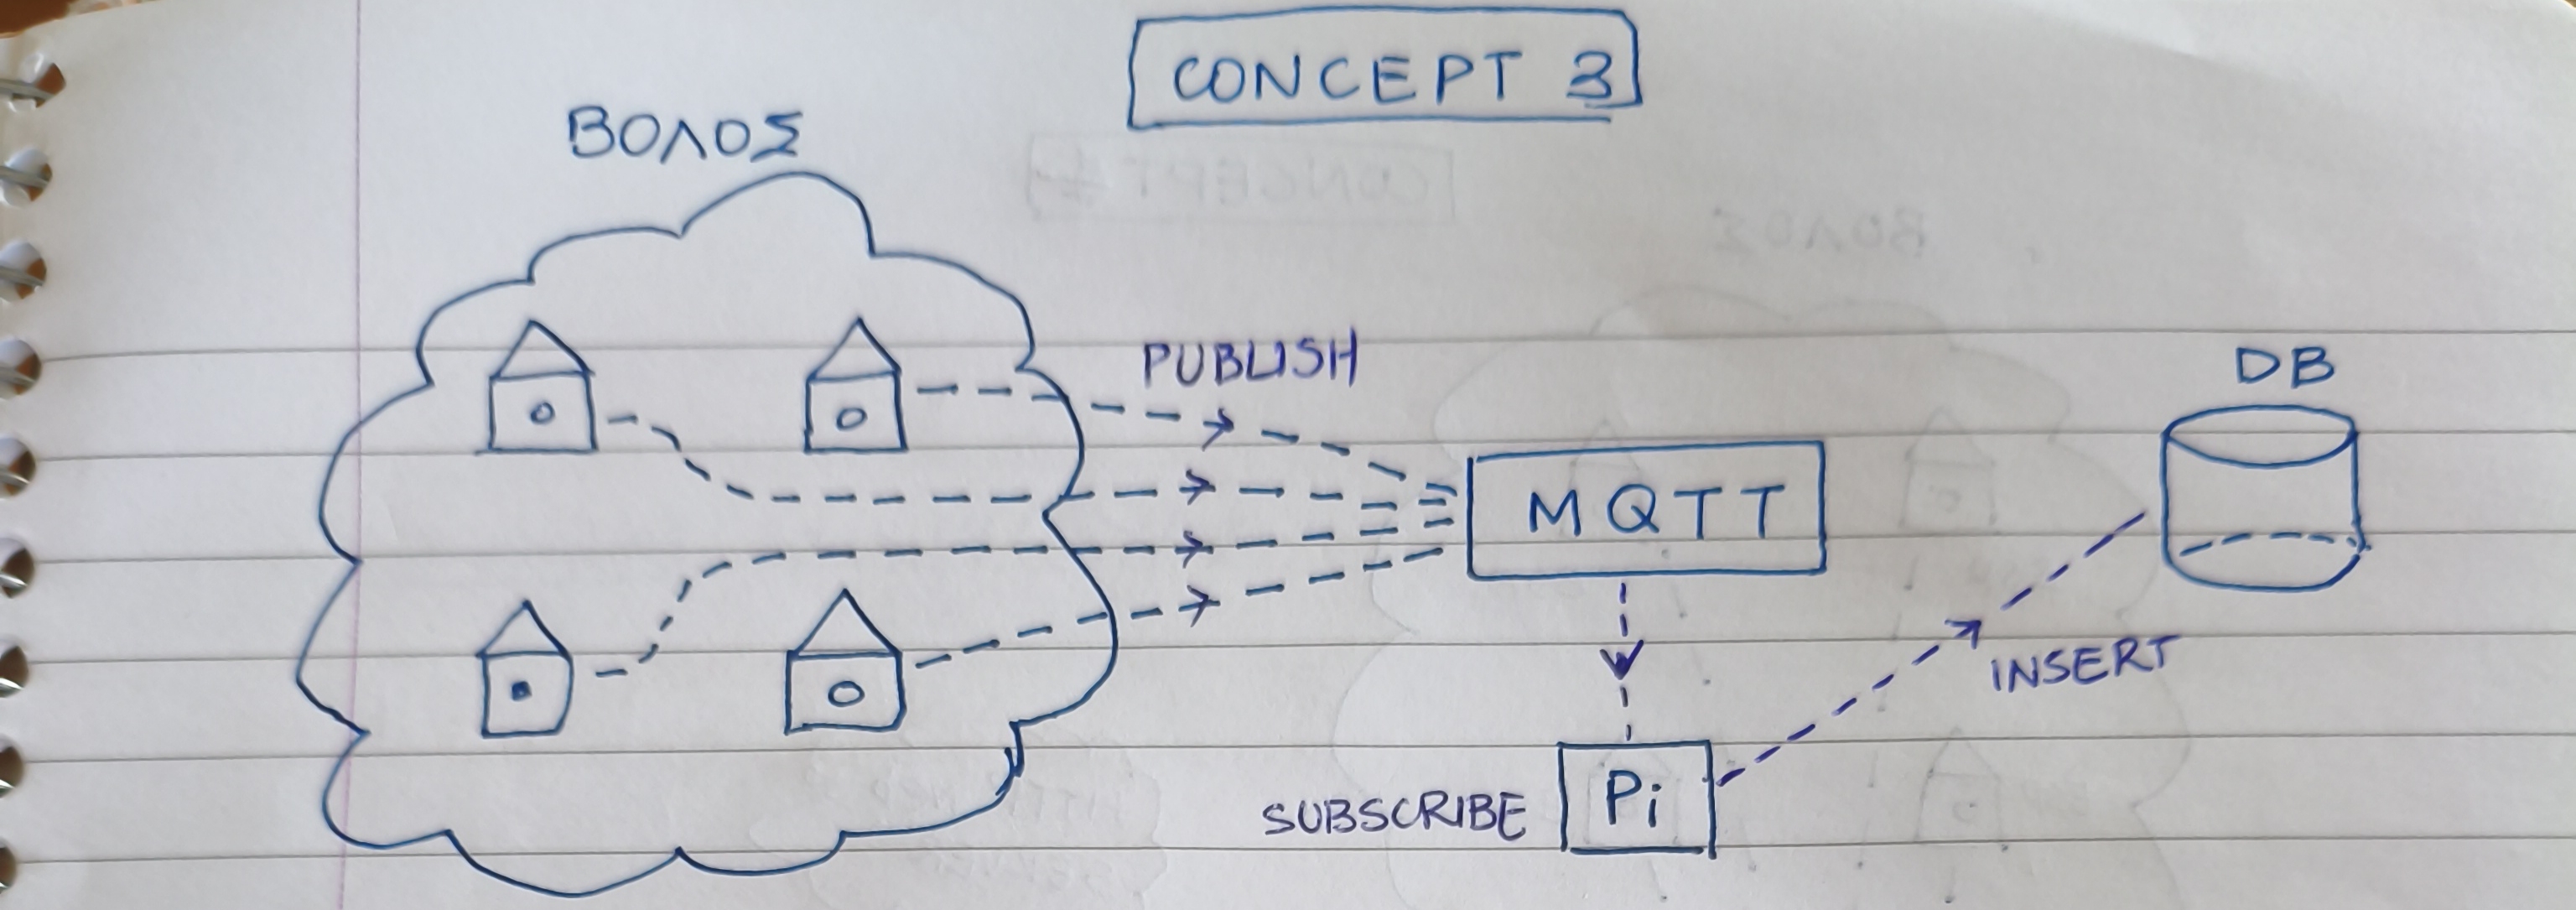 CONCEPT 3
ΒΟΛΟΣ
PUBLISH
DB
MQTT
INSERT
SUBSCRIBE
Pi